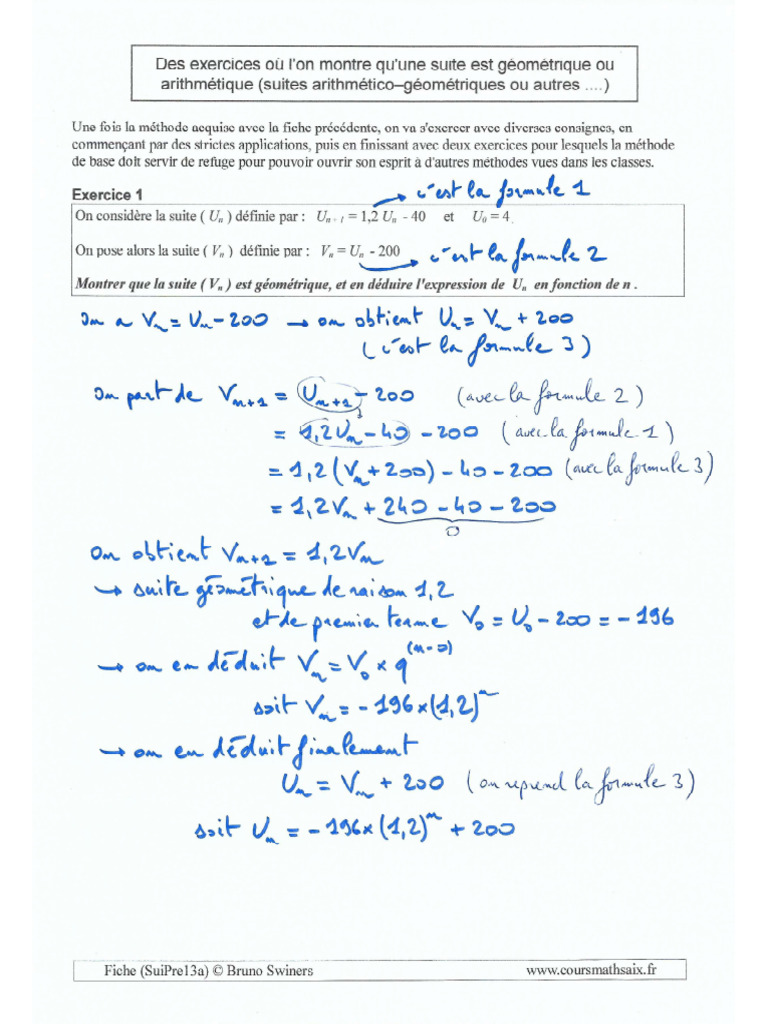 Des exercices où l'on montre qu'une suite est géométrique ou
arithmétique (suites arithmético–géométriques ou autres ....)
Une fois la méthode acquise avec la fiche précédente, on va s'exercer avec diverses consignes, en
commençant par des strictes applications, puis en finissant avec deux exercices pour lesquels la méthode
de base doit servir de refuge pour pouvoir ouvrir son esprit à d'autres méthodes vues dans les classes.
Exercice 1 → c'est la formule 1
On considère la suite ( Uₙ ) définie par : Uₙ₊₁ = 1,2 Uₙ - 40 et U₀ = 4.
On pose alors la suite ( Vₙ ) définie par : Vₙ = Uₙ - 200 → c'est la formule 2
Montrer que la suite ( Vₙ ) est géométrique, et en déduire l'expression de Uₙ en fonction de n .
On a Vₙ = Uₙ - 200 → on obtient Uₙ = Vₙ + 200
(c'est la formule 3)
On part de Vₙ₊₁ = Uₙ₊₁ - 200 (avec la formule 2)
= 1,2Uₙ - 40 - 200 (avec la formule 1)
= 1,2(Vₙ + 200) - 40 - 200 (avec la formule 3)
= 1,2Vₙ + 240 - 40 - 200
0
On obtient Vₙ₊₁ = 1,2Vₙ
→ suite géométrique de raison 1,2
et de premier terme V₀ = U₀ - 200 = - 196
→ on en déduit Vₙ = V₀ × q⁽ⁿ⁻⁰⁾
soit Vₙ = - 196 × (1,2)ⁿ
→ on en déduit finalement
Uₙ = Vₙ + 200 (on reprend la formule 3)
soit Uₙ = - 196 × (1,2)ⁿ + 200
Fiche (SuiPre13a) © Bruno Swiners www.coursmathsaix.fr